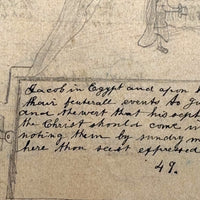 Jacob in Egypt and upon
their feuterall events to
and the vert that his sept
the Christ should come in
noting them by sundry m
here thou seest expressed
49.